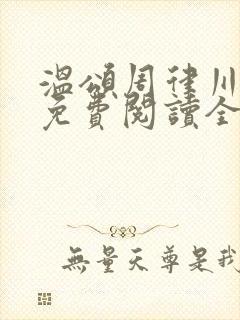 溫頌周律川
免費閱讀全
無量天尊是我